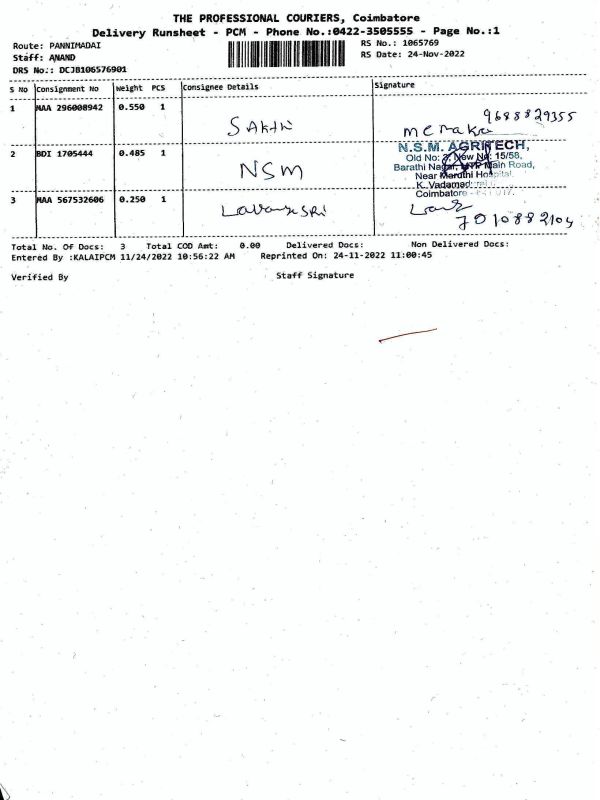 THE PROFESSIONAL COURIERS, Coimbatore
Delivery Runsheet - PCM - Phone No.:0422-3505555 - Page No.:1
Route: PANNIMADAI
RS No.: 1065769
Staff: ANAND
RS Date: 24-Nov-2022
DRS No.: DCJB106576901
S No Consignment No Weight PCS Consignee Details Signature
1 MAA 296008942 0.550 1 SAKthi 9688829355
menaka
2 BDI 1705444 0.485 1 NSM N.S.M. AGRITECH,
Old No: 3, New No: 15/58,
Barathi Nagar, MTP Main Road,
Near Maruthi Hospital,
K. Vadamadurai
Coimbatore - 641 017.
3 MAA 567532606 0.250 1 Lavanya SRi
7010882104
Total No. Of Docs: 3 Total COD Amt: 0.00 Delivered Docs: Non Delivered Docs:
Entered By :KALAIPCM 11/24/2022 10:56:22 AM Reprinted On: 24-11-2022 11:00:45
Verified By Staff Signature